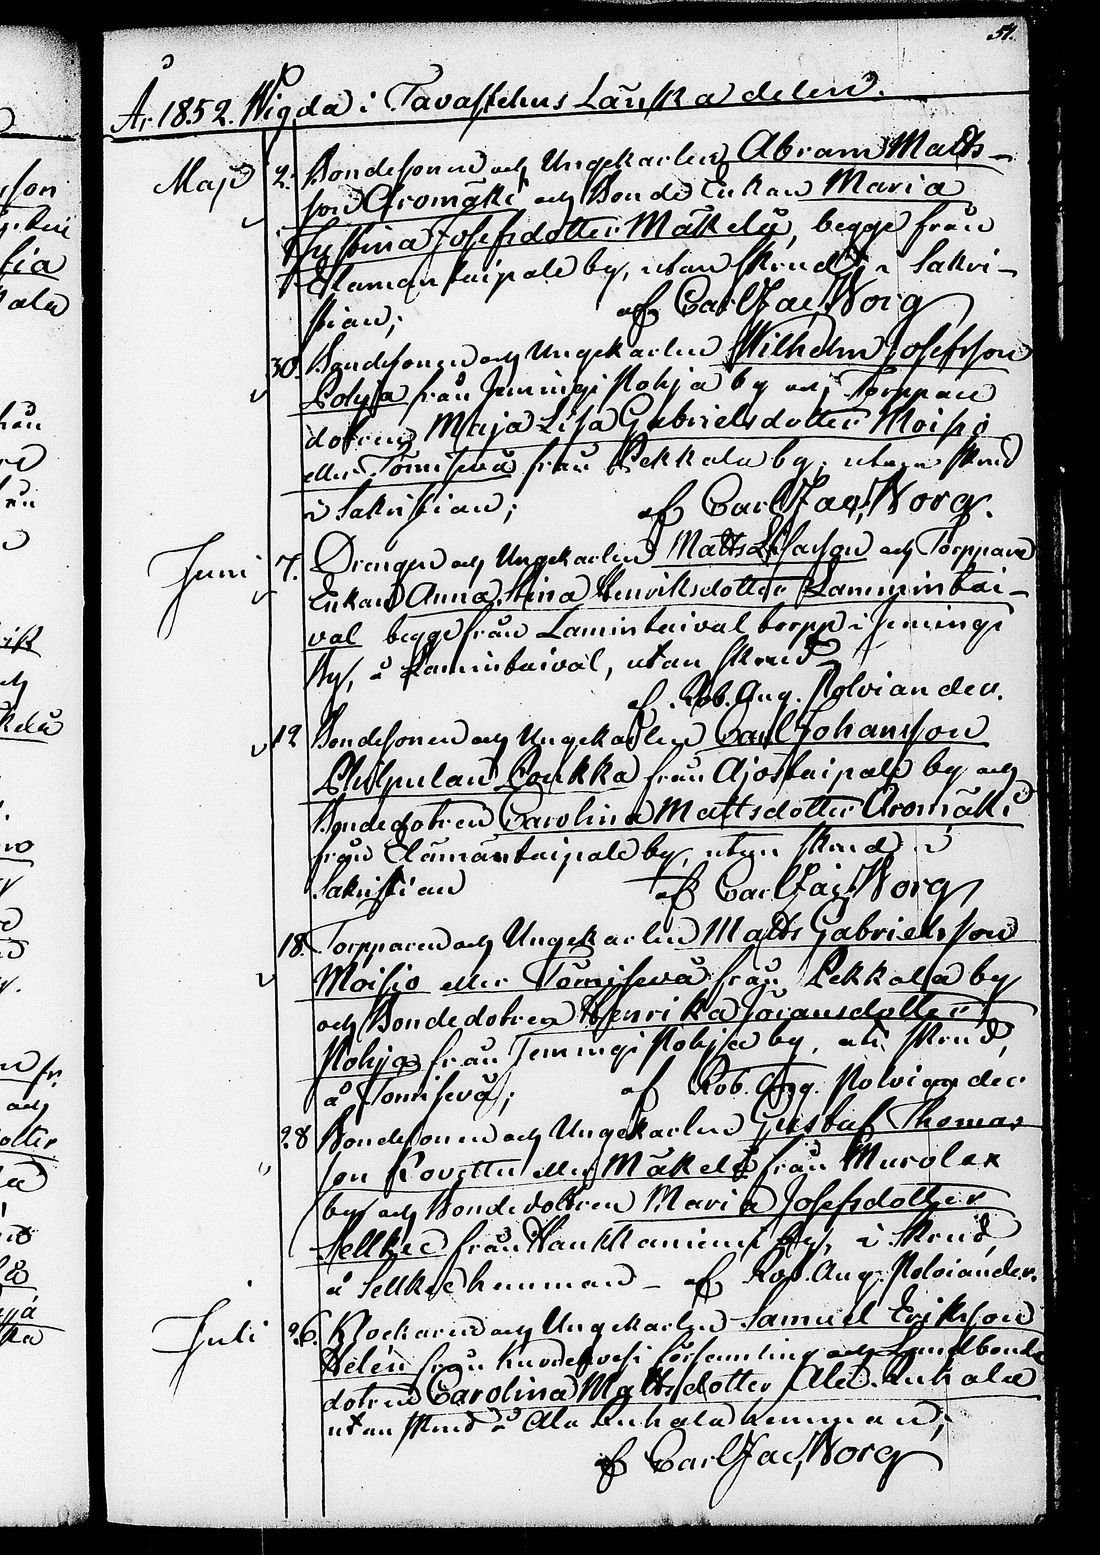 51.
År 1852. Wigda i Tavastehus Länska delen.
Maji 2. Bondesonen och Ungekarlen Abram Matts-
son Aromäki och Bonde Enkan Maria
Christina Josefsdotter Mäkelä, begge från
Elamantaipale by, utan skrud i Sakri-
stian; af Carl Jac. Norg
30. Bondesonen och Ungekarlen Wilhelm Josefsson
Pohja från Jemingi Pohja by och Torppare
dotren Maja Lisa Gabrielsdotter Moisio
eller Tömisevä från Pekkala by, utan skrud
i Sakristian; af Carl Jac. Norg.
Juni 7. Drengen och Ungekarlen Matts och Torppare
Enkan Anna Stina Henriksdotter Lammintai-
val begge från Lamintaival torpp i Jemingi
by, å Lamintaival, utan skrud
af Rob. Aug. Polviander.
12 Bondesonen och Ungekarlen Carl Johansson
Loukka från Ajostaipale by och
Bondedotren Carolina Mattsdotter Aromäki
från Elämäntaipale by, utan skrud i
Sakristian af Carl Jac. Norg
18. Torpparen och Ungekarlen Matts Gabrielsson
Moisio eller Tömisevä från Pekkala by
och Bondedotren Henrika Göransdotter
Pohja från Jemingi Pohja by, uti skrud,
å Tömisevä; af Rob. Aug. Polviander
28 Bondesonen och Ungekarlen Gustaf Thomas
son eller Mäkelä från Murolax
by och Bondedotren Maria Josefsdotter
Sellkee från Haukkaniemi by, i skrud,
å Sellkee hemman - af Rob. Aug. Polviander.
Juli 26. Klockaren och Ungekarlen Samuel Eriksson
Helén från församling och Landbonde
dotren Carolina Mattsdotter Ala Kuhala
utan skrud å Ala Kuhala hemman;
af Carl Jac. Norg